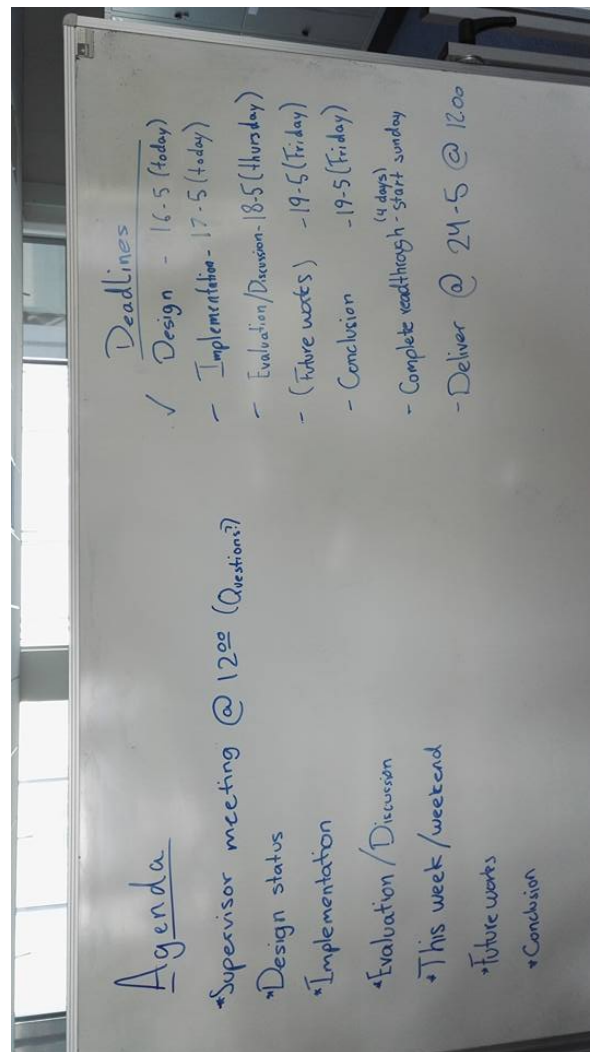 Agenda
*Supervisor meeting @ 12⁰⁰ (Questions?)
*Design status
*Implementation
*Evaluation/Discussion
*This week/weekend
*Future works
*Conclusion
Deadlines
✓ Design - 16-5 (today)
- Implementation - 17-5 (today)
- Evaluation/Discussion - 18-5 (thursday)
- (Future works) - 19-5 (Friday)
- Conclusion - 19-5 (Friday)
- Complete readthrough (4 days) - start sunday
- Deliver @ 24-5 @ 12⁰⁰